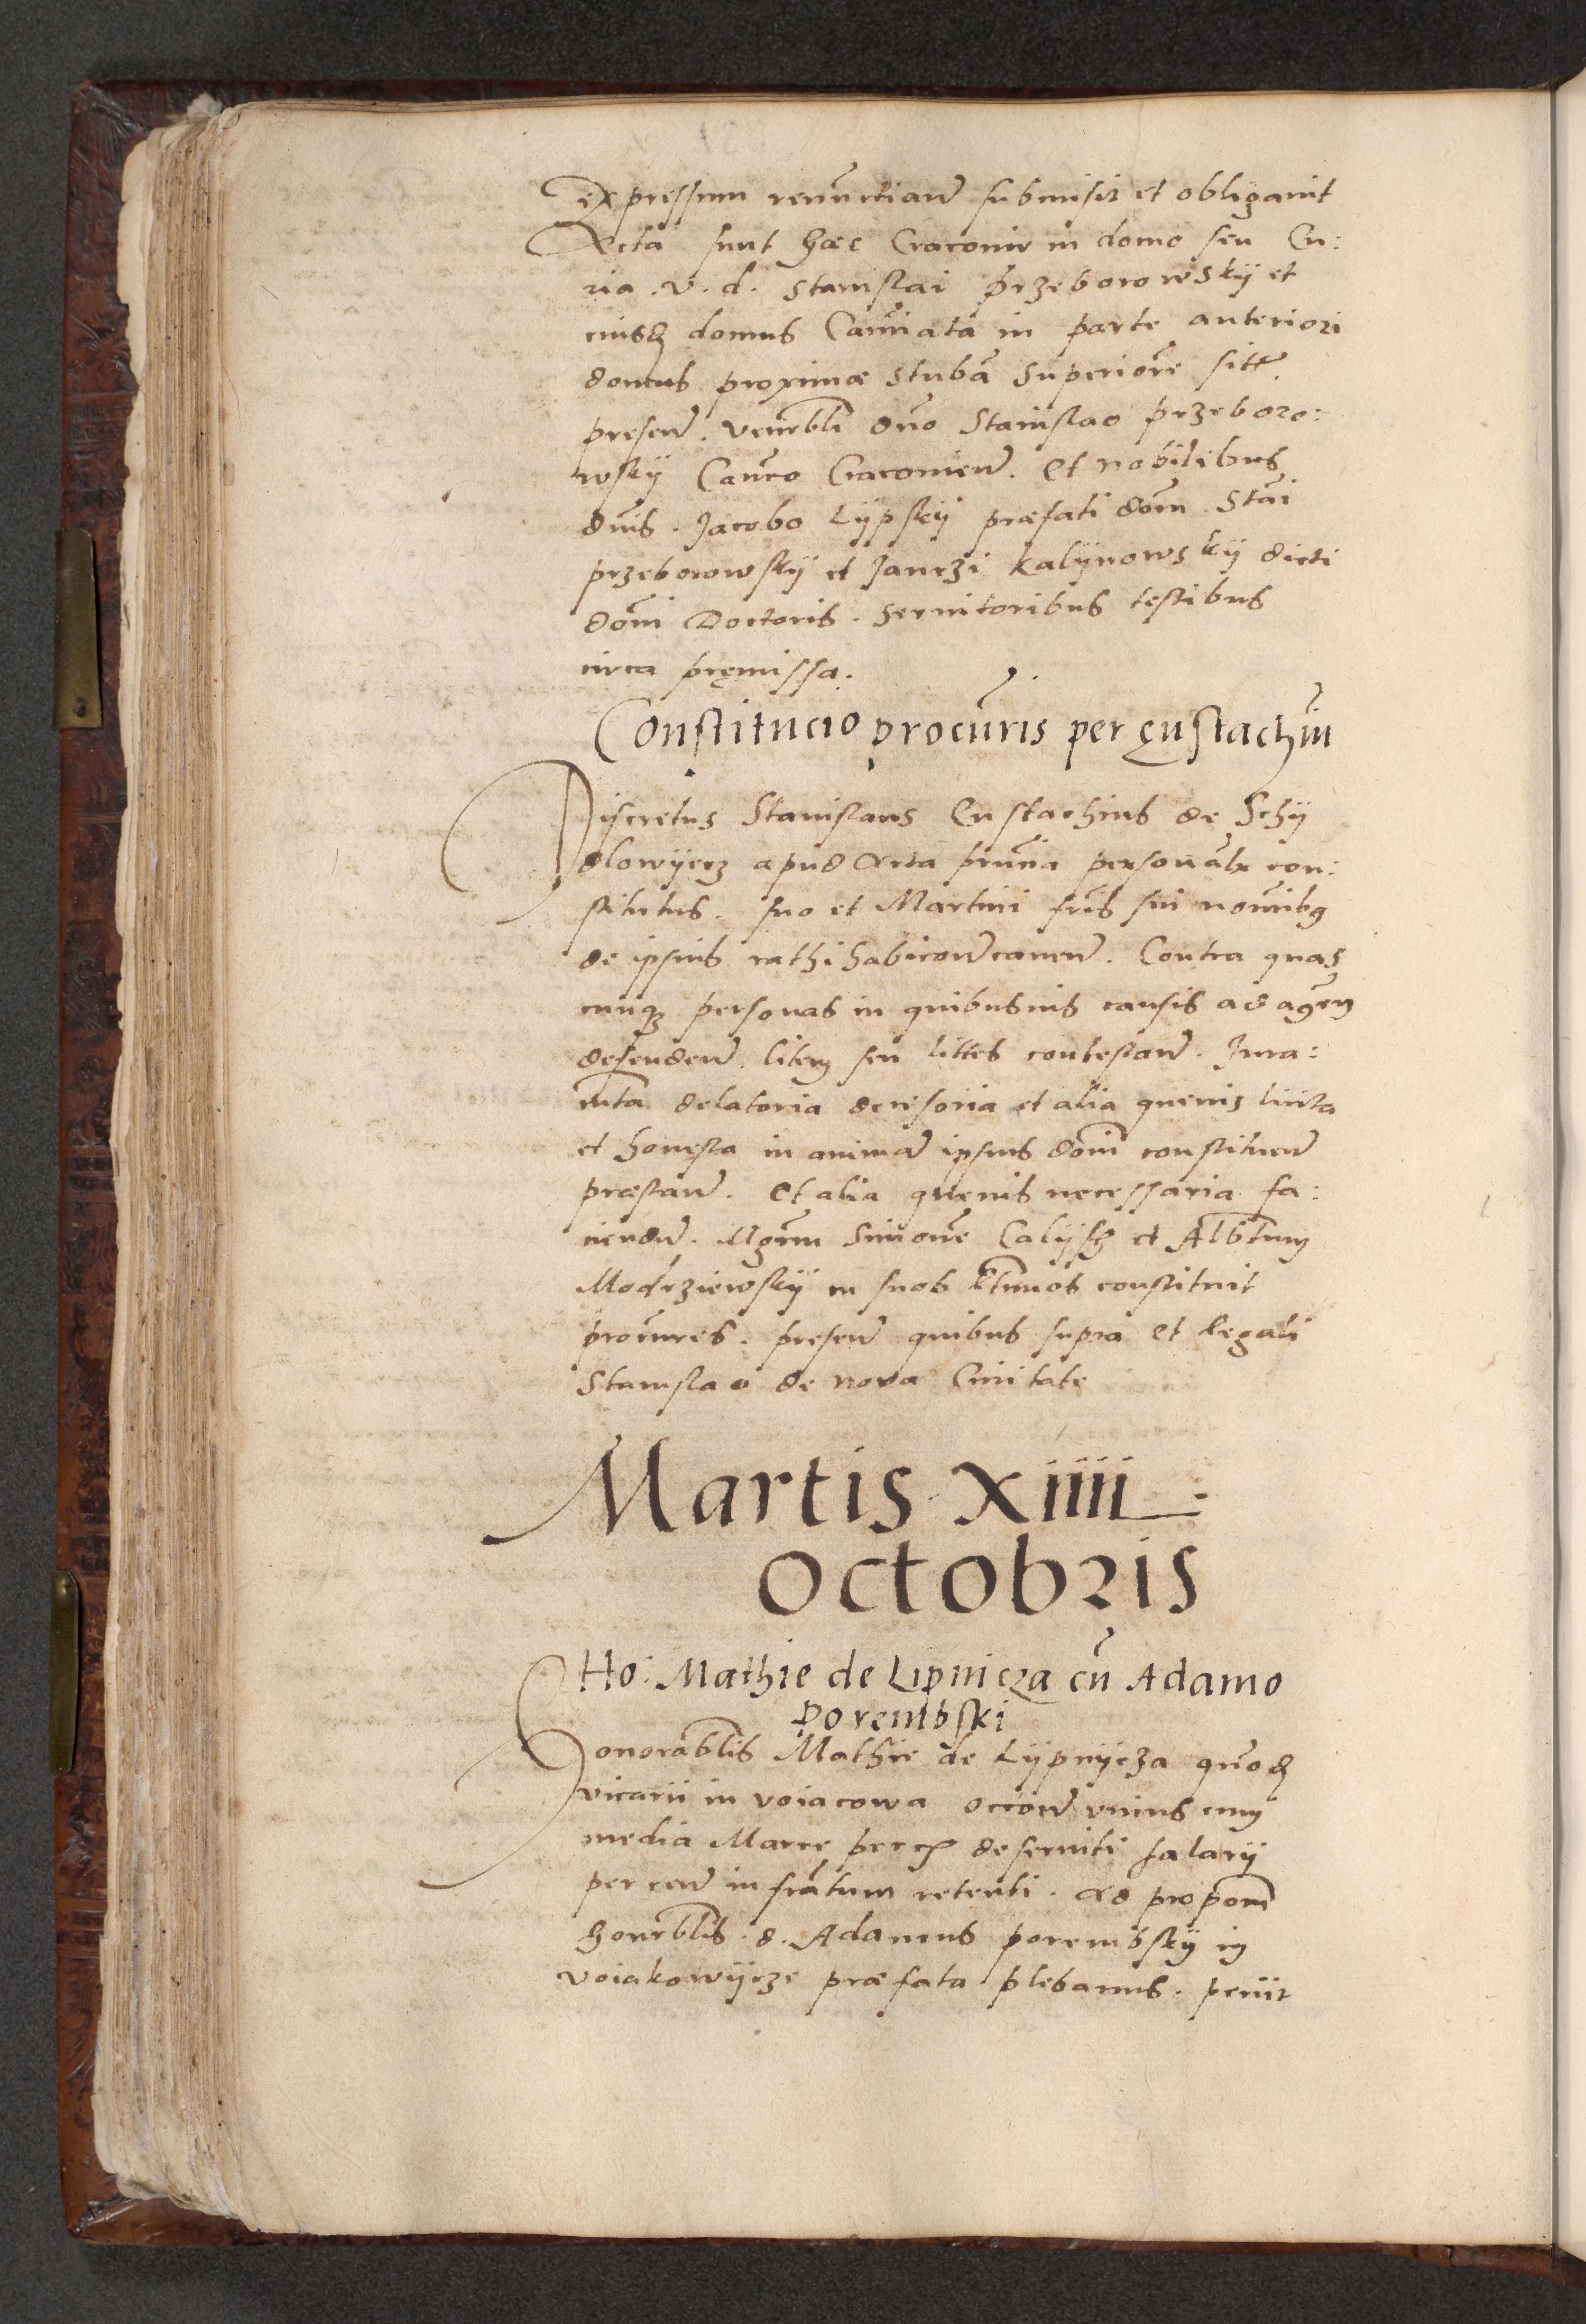 expressum renuntian̄ submisit et obligauit
Acta sunt haec Cracouie in domo seu Cu:
ria . v . d . Stanislai przeborowskÿ et
eiusdꝫ domus Cam̄ata in parte anteriori
domus proximae stubā superiorē sitt̄
presen̄ . venerbli dn̄o Stanislao przeboro:
wskÿ Can̄co Cracouien̄ . Et nobilibus
dn̄is . Jacobo Lÿpskÿ praefati dōm . Stāi
przeborowskÿ et Janczi kalÿnowskÿ dicti
dōni Doctoris . seruitoribus testibus
circa pręmissa .
Constitucio procūris per ęustachiū
Discretus Stanislaus Eustachius de Schÿ
dlowÿecz apud Acta prn̄cia personalr̄ con:
stitutus . suo et Martini fr̄is sui nom̄ibꝯ
de ipsius rathihabicon̄ cauen̄ . Contra quas
cunqꝫ personas in quibusuis causis ad agen̄
defenden̄ . litem seu littes contestan̄ . Jura:
mt̄a delatoria decisoria et alia queuis licita
et honesta in animā ipsius dōni constituen̄
praestan̄ . et alia queuis necessaria fa:
ciendn̄ . Mgr̄m Simonē Calÿsꝫ et Albt̄um
Modrziewskÿ in suos lt̄imos constituit
procūres . presen̄ quibus supra et legali
Stanislao de noua Ciuitate
Martis xiiii
octobris
Ho: Mathie de Lipnicza cū Adamo
porembski
Honorablis Mathie de Lÿpnÿcza quōdꝫ
vicarii in voiacowa occōn̄ vnius cum
media Marce pecc̄ deseruiti salarÿ
per eun̄ infrātum retenti . ad propōm
honorblis . d . Adamus porembskÿ in
voiakowÿcze praefata plebanus . petiit